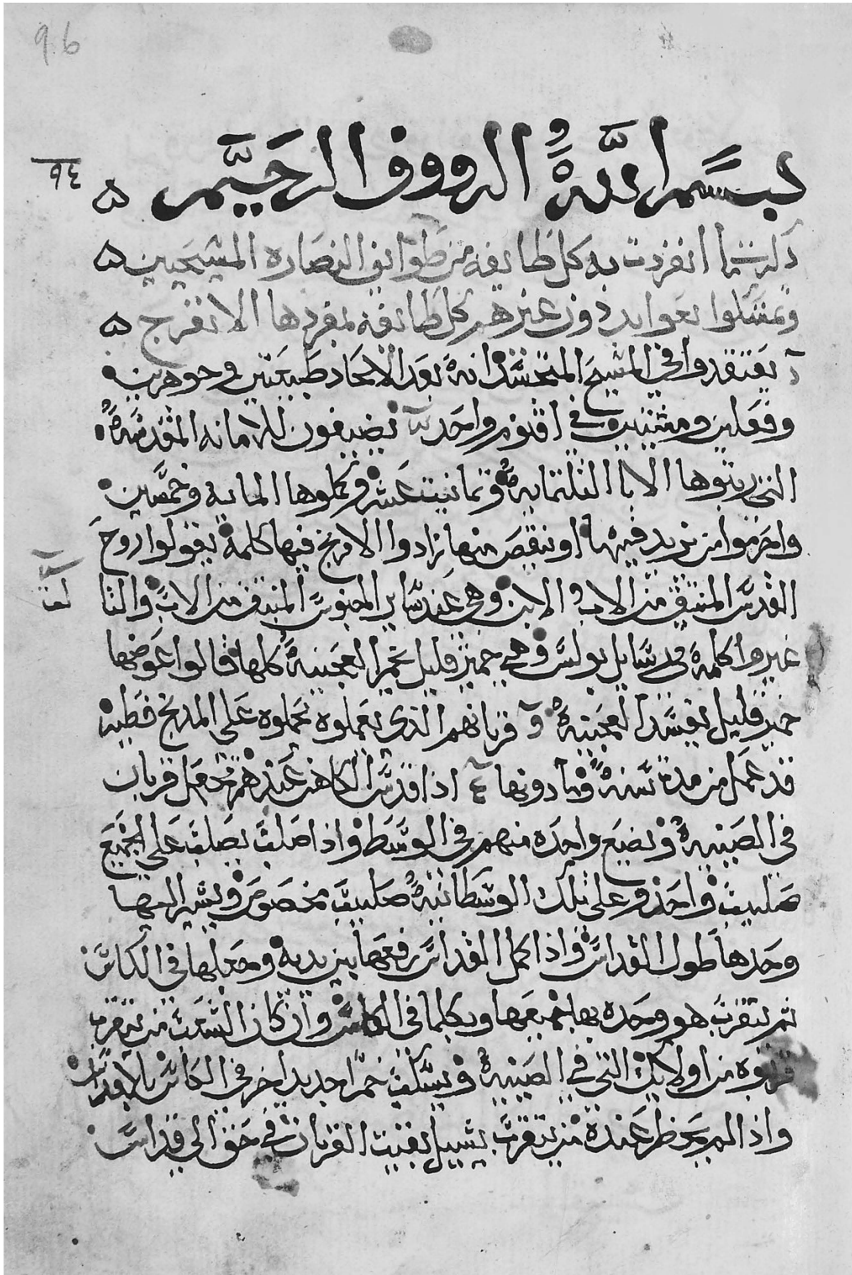 96
٩٤
بسم الله الرووف الرحيم
ذكر ما انفردت به كل طايفه من طوايف النصاره المسيحيين
وتمسكوا بعوايد دون غيرهم كل طايفة بمفردها الافرنج
يعتقدوا في المسيح المتجسد انه بعد الاتحاد طبيعتين وجوهرين
وفعلين ومشيتين في اقنوم واحد يضيفون للامانه المقدسة
التي رتبوها الابا الثلثماية وثمانيت عشر وكملوها الماية وخمسين
واحرموا من يزيد فيها او ينقص منها زادوا الافرنج فيها كلمة يقولوا روح
القدس المنبثق من الاب والابن وهي عند ساير الجنوس المنبثق من الاب والثا
غيروا كلمة في رسايل بولس وهي خمير قليل يخمر العجينة كلها قالوا عوضها
خمير قليل يفسد العجينة قربانهم الذي يعملوه يحملوه على المدبح فطير
قد عمل من مدة سنة اذا قدس الكاهن عندهم يجعل قربان
في الصينية ويضع واحده منهم في الوسط واذا صلب يصلب على الجميع
صليب واحد وعلى تلك الوسطانية صليب مخصوص ويشير اليها
وحدها طول القداس واذا كمل القداس رفعها بين يديه وجعلها في الكاس
ثم يتقرب هو وحده بها جميعها وبكلما في الكاس وان كان الشعب من يتقرب
قربوه من اولايك التي في الصينية ويسكب خمرا جديد اخر في الكاس بلا قداس
واذا لم يحظر عنده من يتقرب يشيل بقيت القربان في حق الي قداس